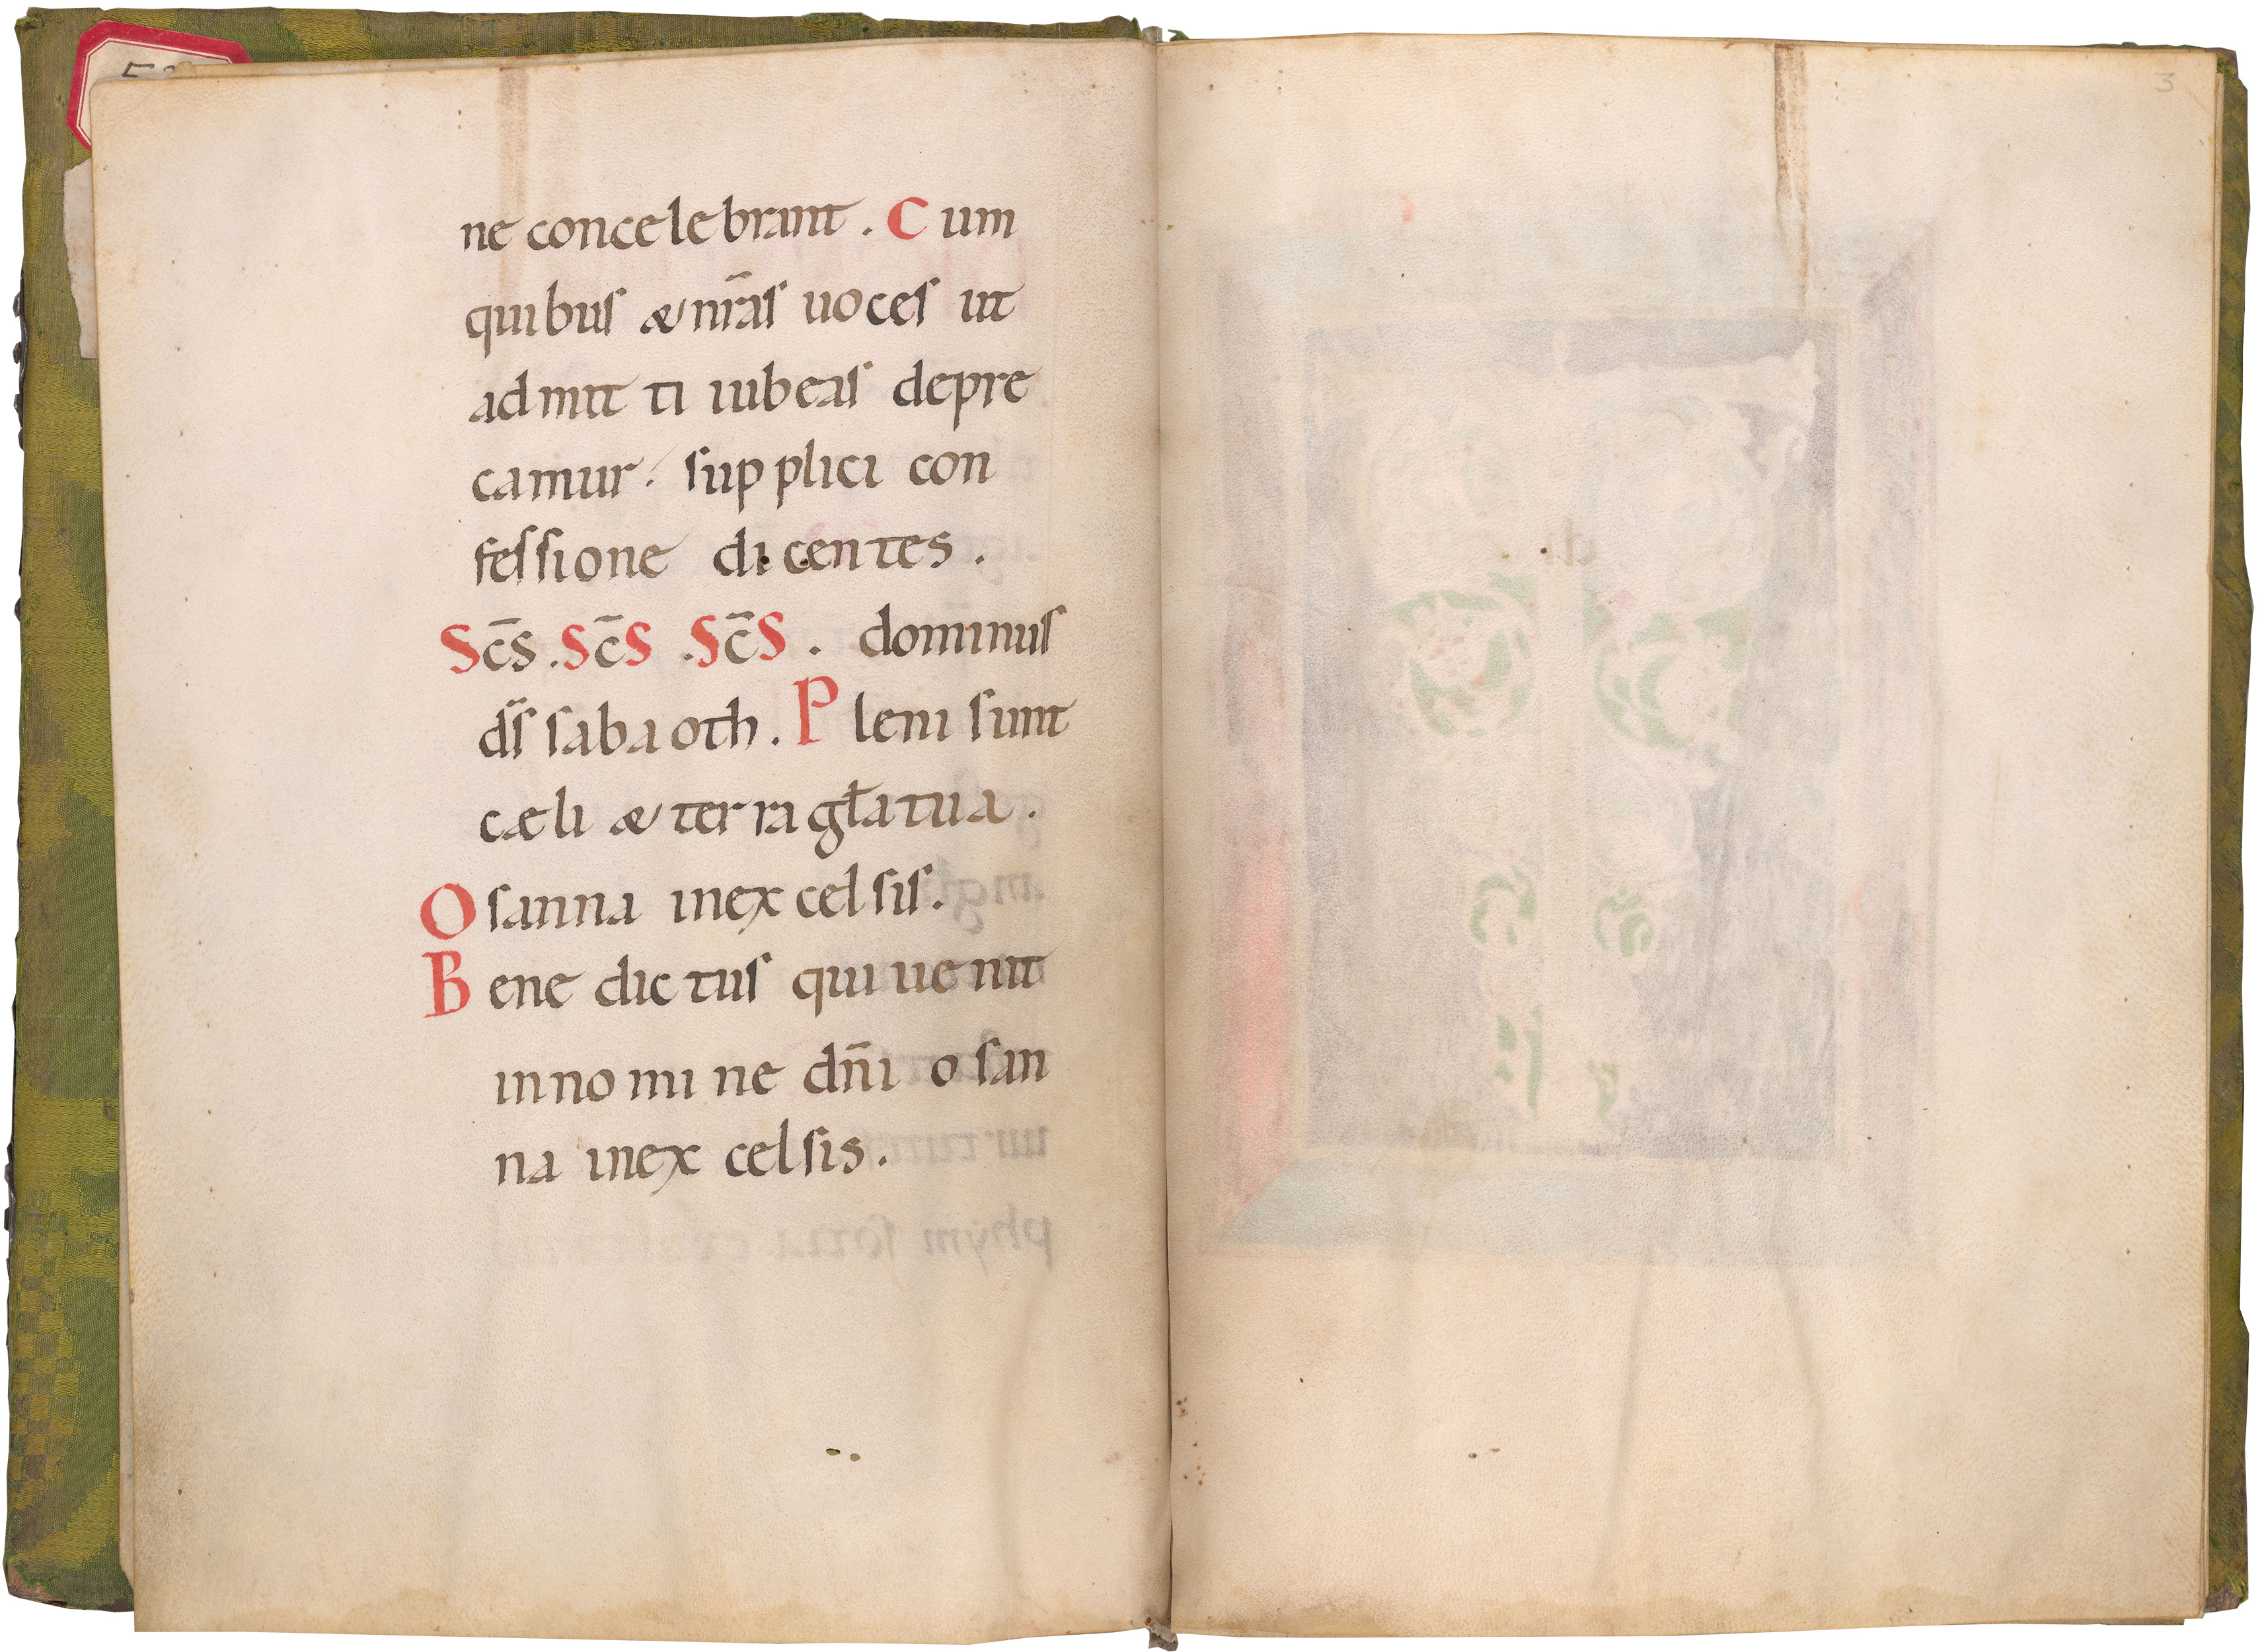 ne concelebrant. Cum
quibus & nr̄as uoces ut
admitti iubeas depre
camur. supplici con
fessione dicentes.
Sc̄s. Sc̄S. Sc̄S. dominus
ds̄ sabaoth. Pleni sunt
cæli & terra gɫa tua.
Osanna inexcelsis.
Benedictus qui uenit
innomine dn̄i osan
na inexcelsis.
3